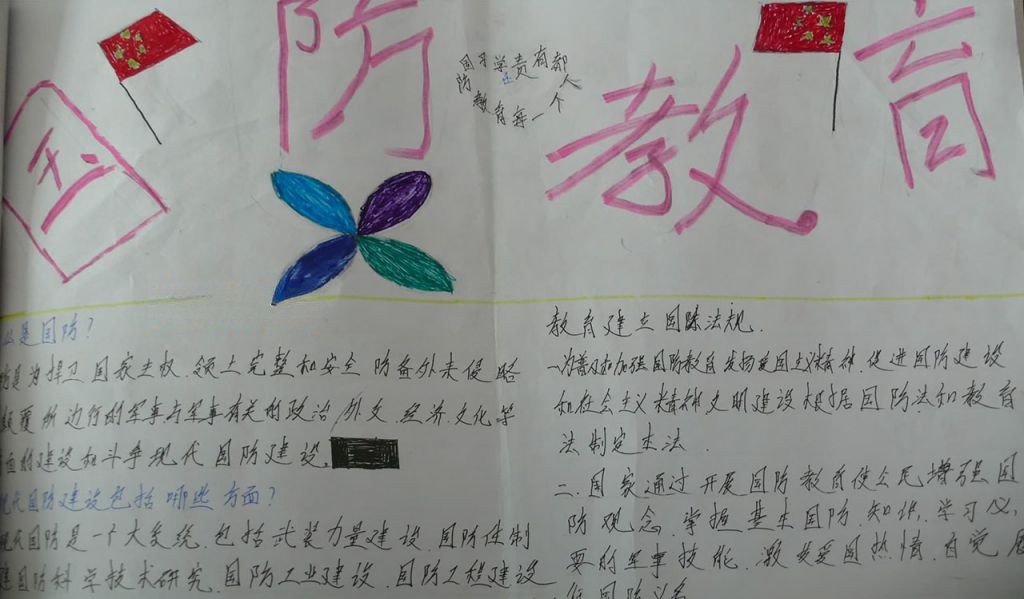 国防教育
国防
教育
学
责
每一个
有
都
人
么是国防?
是为捍卫国家主权、领土完整和安全 防备外来侵略
颠覆所边行的军事与军事有关的政治 外交 经济 文化等
面的建设和斗争现代国防建设
现代国防建设包括哪些方面?
现代国防是一个大系统、包括武装力量建设、国防体制
国防科学技术研究、国防工业建设、国防工程建设
教育建立国际法规.
一为普及和加强国防教育发扬爱国主义精神、促进国防建设
和社会主义精神文明建设根据国防法和教育
法制定本法.
二、国家通过开展国防教育使公民增强国
防观念、掌握基本国防、知识、学习必、
要的军事技能、激发爱国热情、自觉履
国防义务